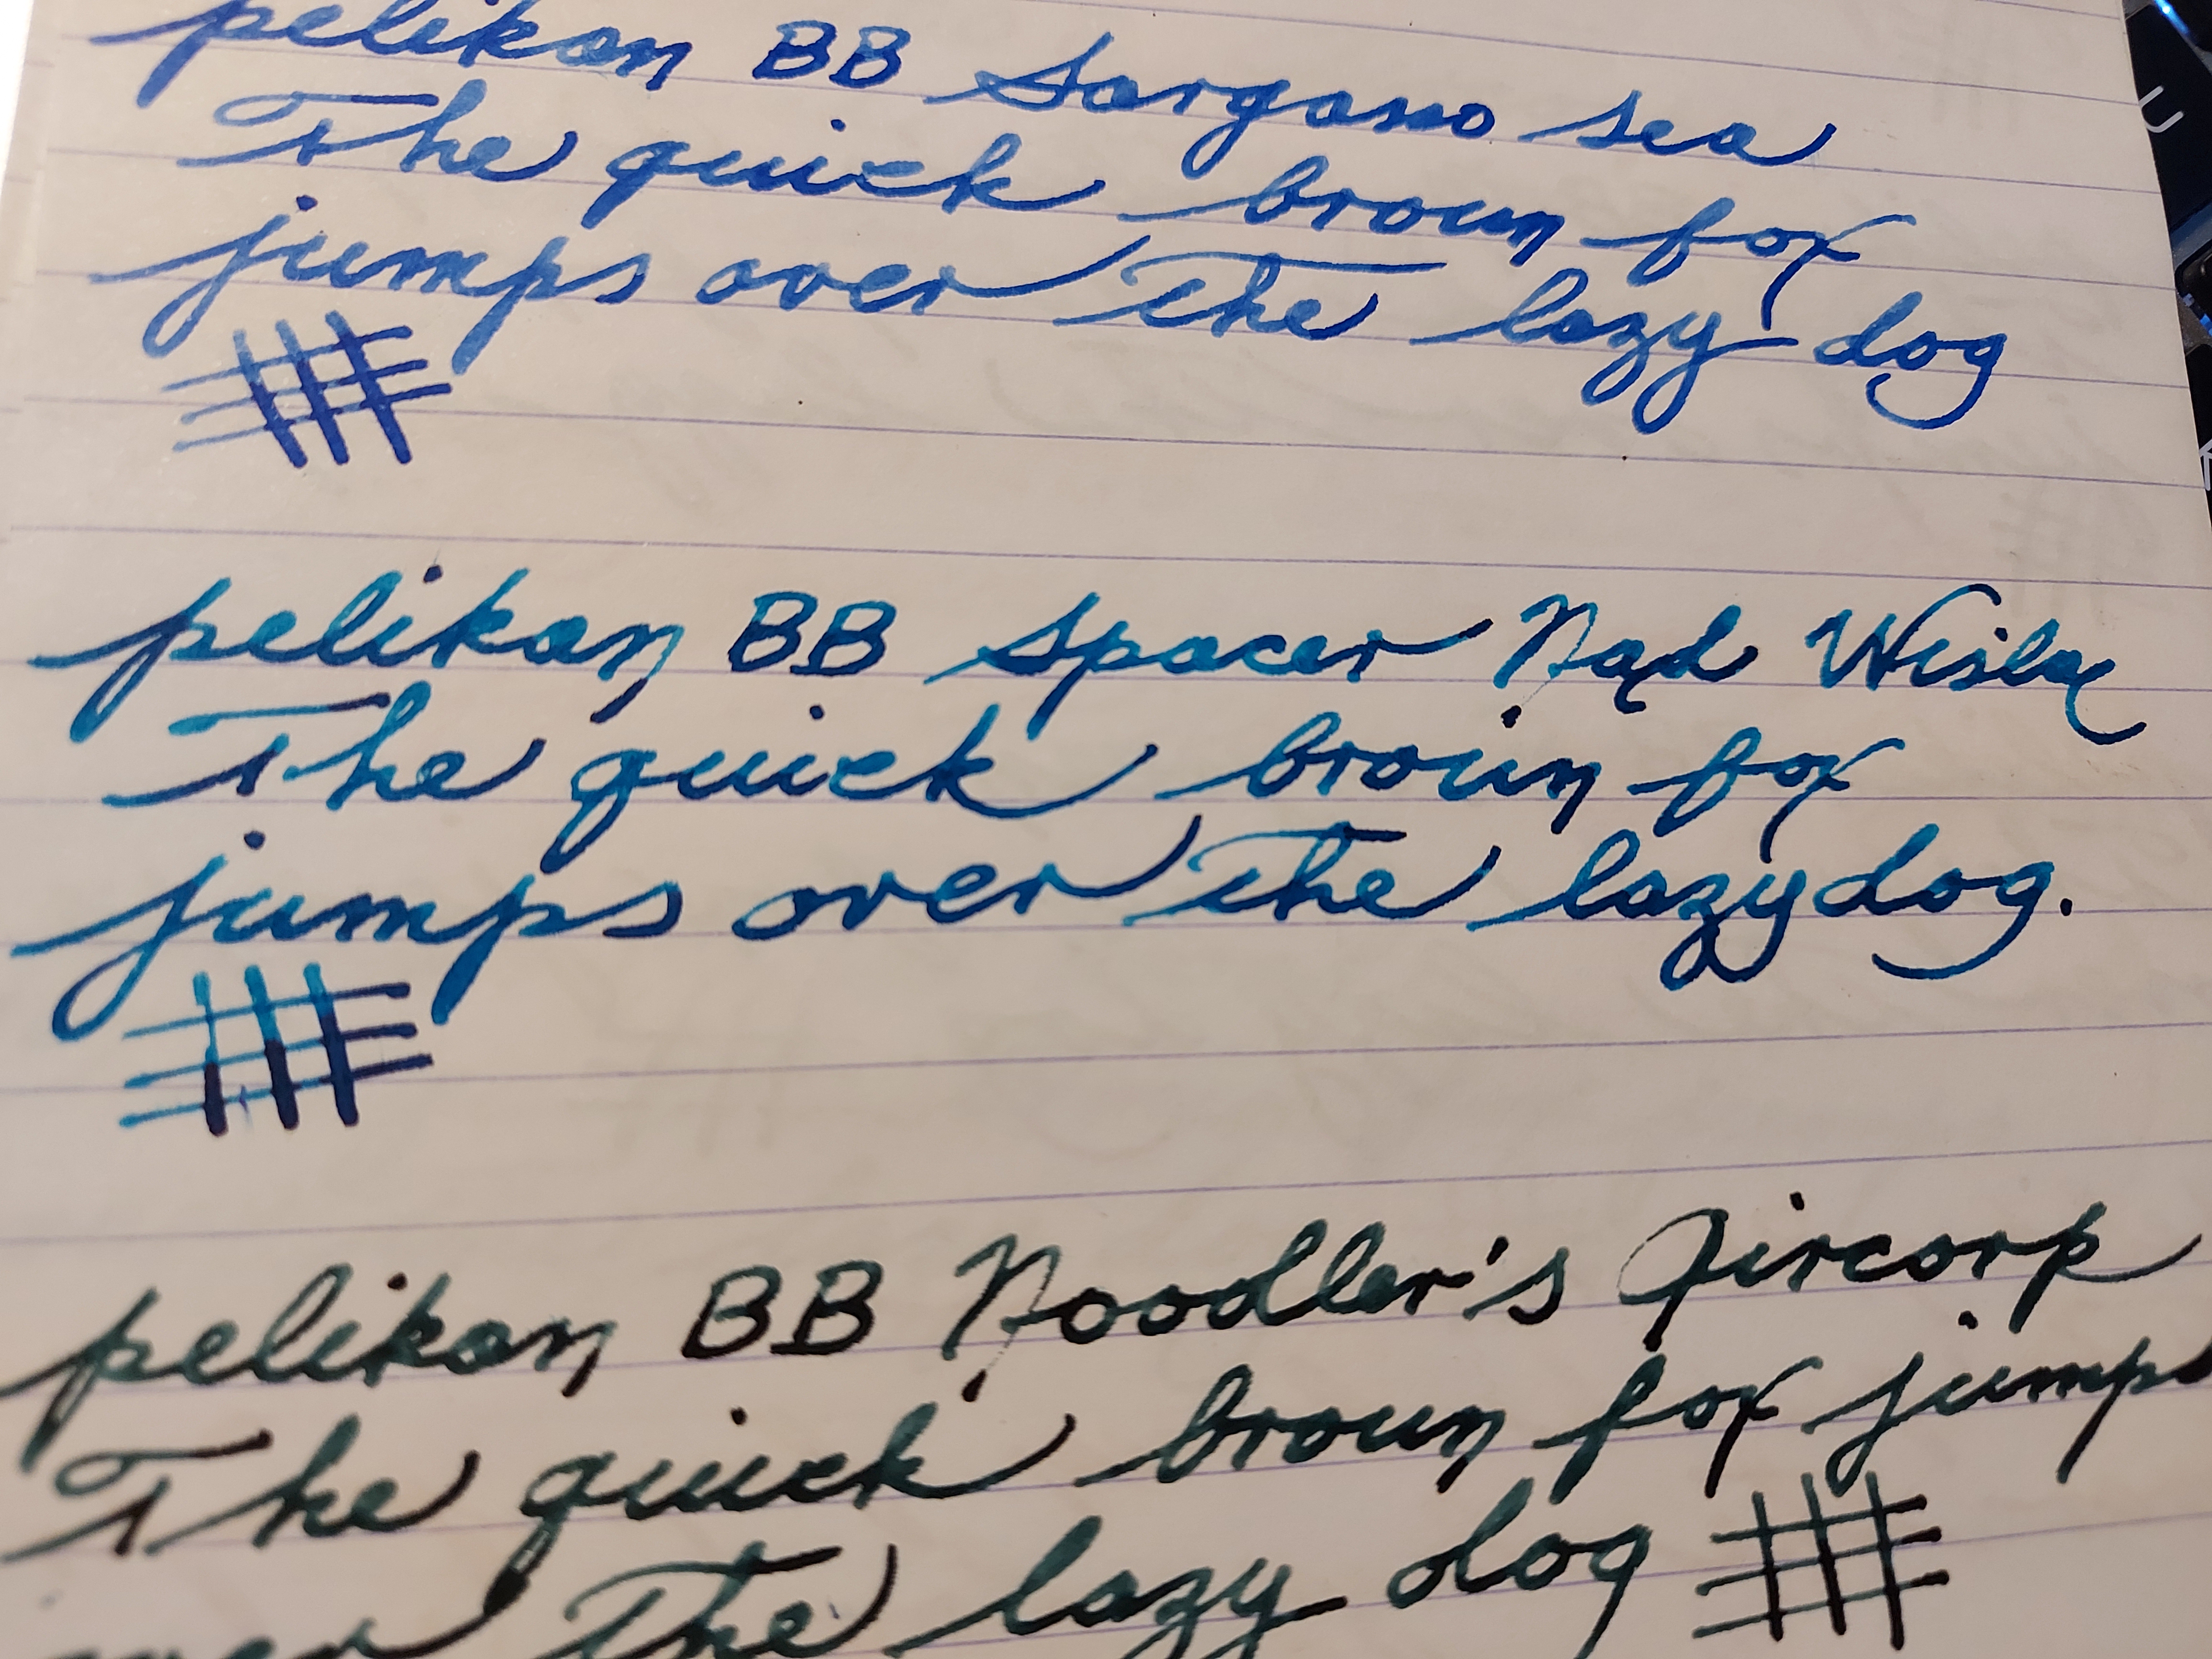 pelikan BB Sargasso sea
The quick brown fox
jumps over the lazy dog
pelikan BB Spacer Nad Wisłą
The quick brown fox
jumps over the lazy dog.
pelikan BB Noodler's Aircorp
The quick brown fox jumps
over the lazy dog